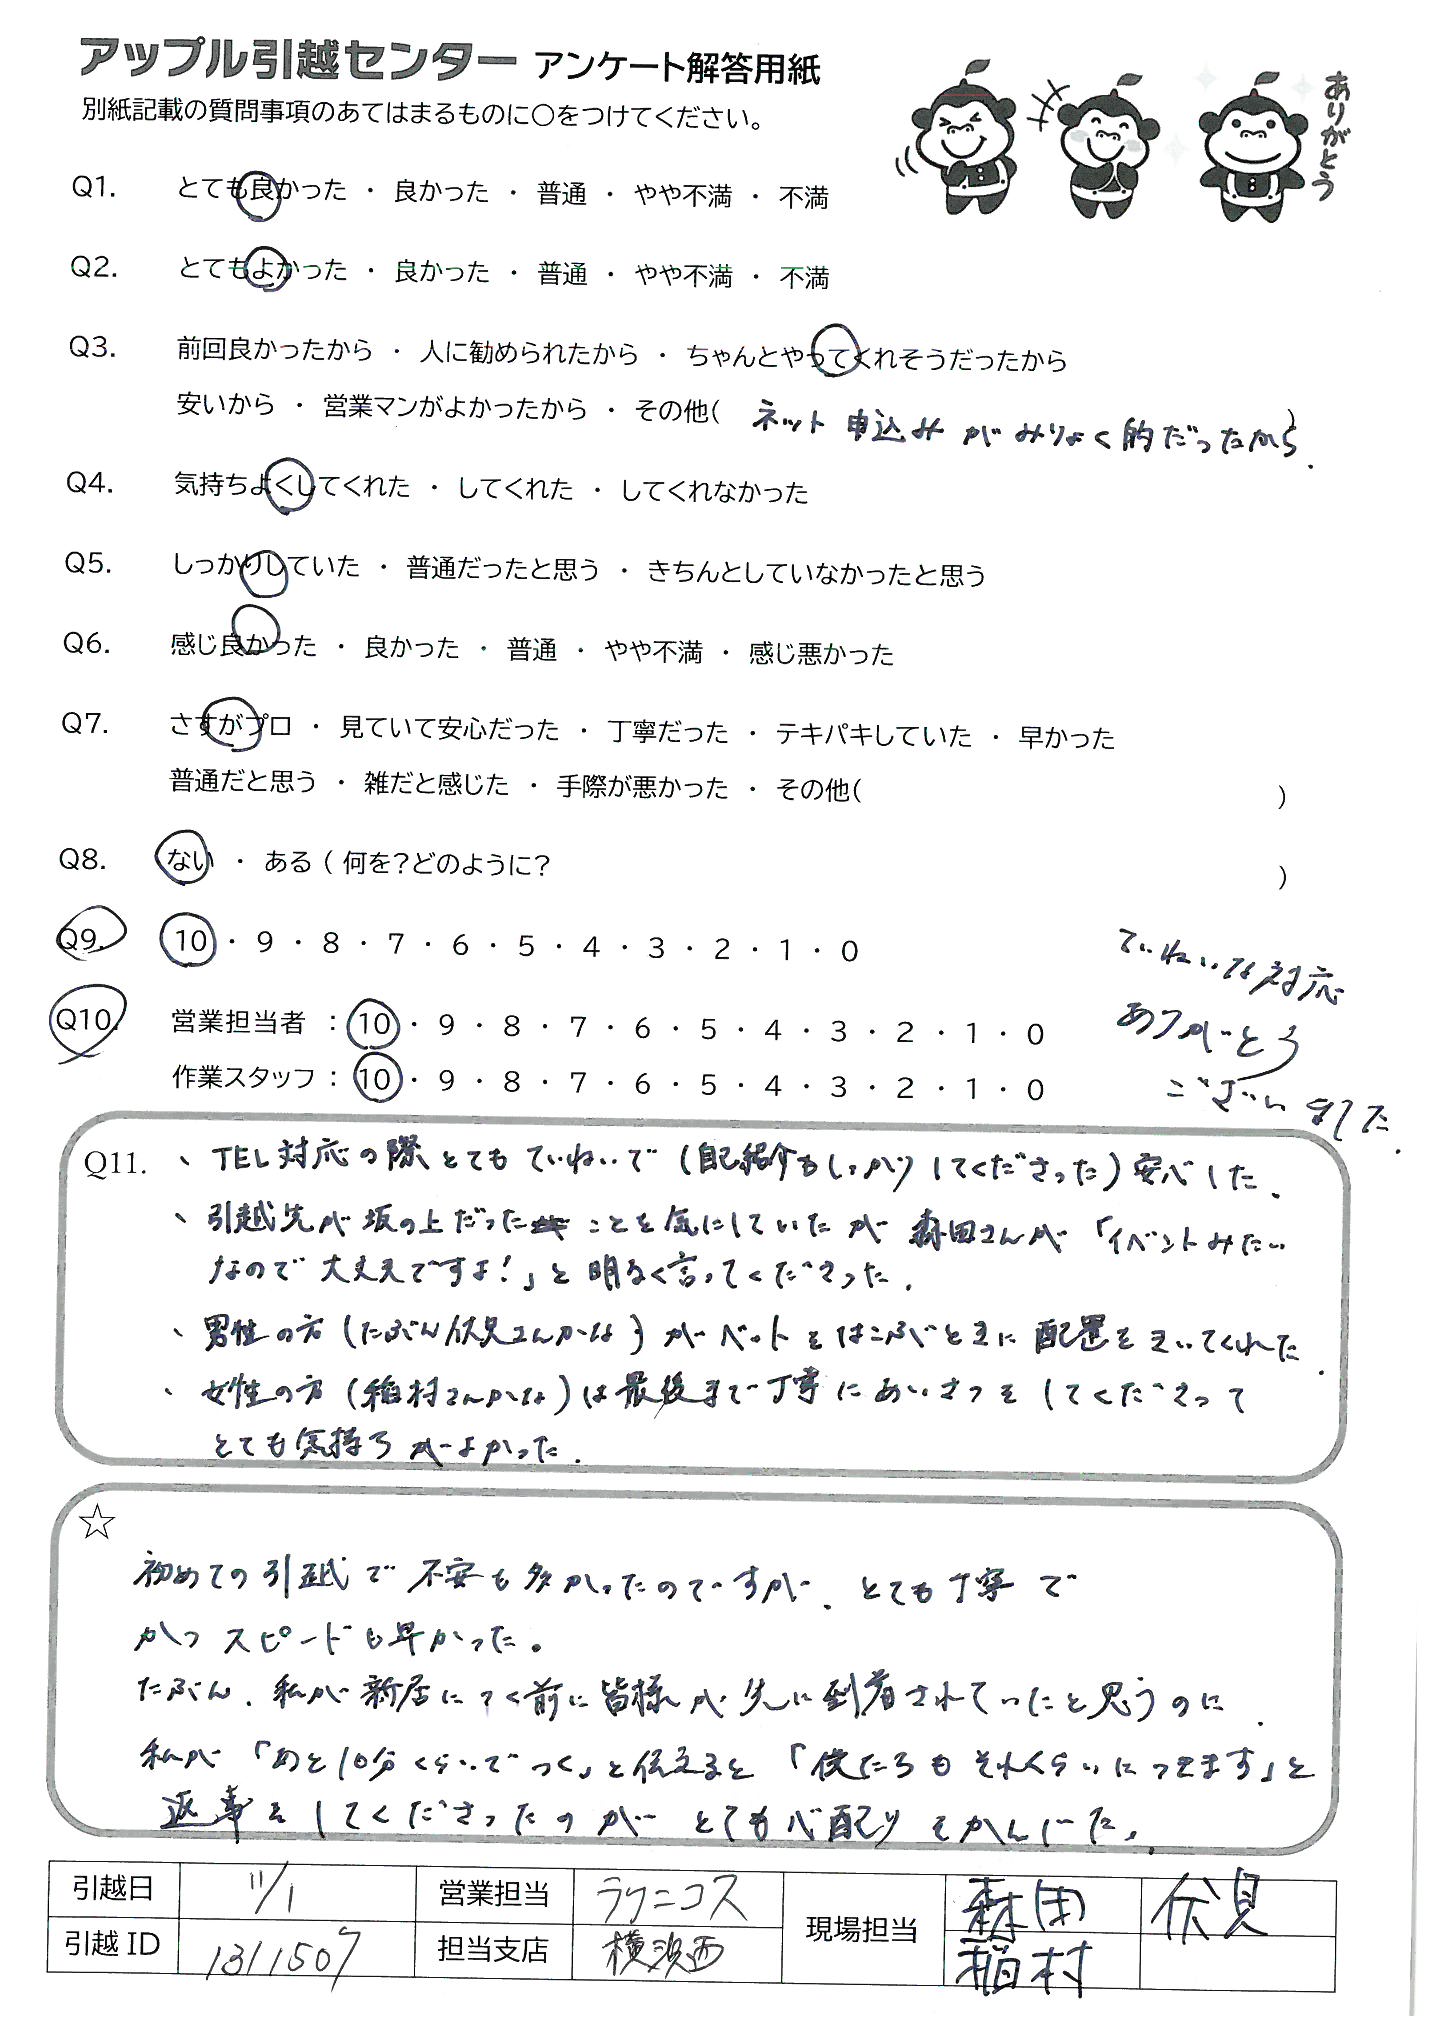 アップル引越センター アンケート解答用紙
別紙記載の質問事項のあてはまるものに〇をつけてください。
ありがとう
Q1. とても良かった ・ 良かった ・ 普通 ・ やや不満 ・ 不満
Q2. とてもよかった ・ 良かった ・ 普通 ・ やや不満 ・ 不満
Q3. 前回良かったから ・ 人に勧められたから ・ ちゃんとやってくれそうだったから
安いから ・ 営業マンがよかったから ・ その他( ネット申込みがみりょく的だったから. )
Q4. 気持ちよくしてくれた ・ してくれた ・ してくれなかった
Q5. しっかりしていた ・ 普通だったと思う ・ きちんとしていなかったと思う
Q6. 感じ良かった ・ 良かった ・ 普通 ・ やや不満 ・ 感じ悪かった
Q7. さすがプロ ・ 見ていて安心だった ・ 丁寧だった ・ テキパキしていた ・ 早かった
普通だと思う ・ 雑だと感じた ・ 手際が悪かった ・ その他( )
Q8. ない ・ ある ( 何を?どのように? )
Q9. 10 ・ 9 ・ 8 ・ 7 ・ 6 ・ 5 ・ 4 ・ 3 ・ 2 ・ 1 ・ 0
Q10. 営業担当者 : 10 ・ 9 ・ 8 ・ 7 ・ 6 ・ 5 ・ 4 ・ 3 ・ 2 ・ 1 ・ 0
作業スタッフ : 10 ・ 9 ・ 8 ・ 7 ・ 6 ・ 5 ・ 4 ・ 3 ・ 2 ・ 1 ・ 0
ていねいな対応
ありがとう
ございました.
Q11. 、TEL対応の際とてもていねいで(自己紹介もしっかりしてくださった)安心した.
、引越先が坂の上だったことを気にしていたが 森田さんが「イベントみたい
なので大丈夫ですよ!」と明るく言ってくださった.
、男性の方(たぶん伏見さんかな)がベットをはこぶときに配置をきいてくれた.
、女性の方(稲村さんかな)は最後まで丁寧にあいさつをしてくださって
とても気持ちがよかった.
☆
初めての引越で不安も多かったのですが、とても丁寧で
かつスピードも早かった。
たぶん、私が新居につく前に皆様が先に到着されていたと思うのに、
私が「あと10分くらいでつく」と伝えると「僕たちもそれくらいにつきます」と
返事をしてくださったのがとても心配りをかんじた.
引越日 11/1 営業担当 ラクニコス 現場担当 森田 伏見
引越ID 1311507 担当支店 横浜西 稲村